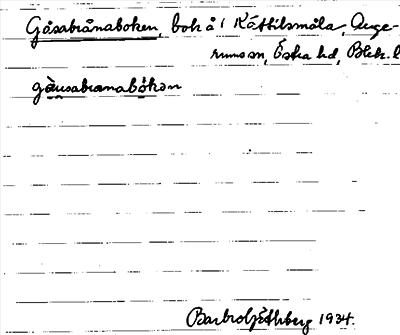 Gåsabrånaboken, bok å 1 Kättilsmåla, Auge-
rums sn, Östra hd, Blek. l
gäusabranabökən
Barbro Ljüthberg 1934.